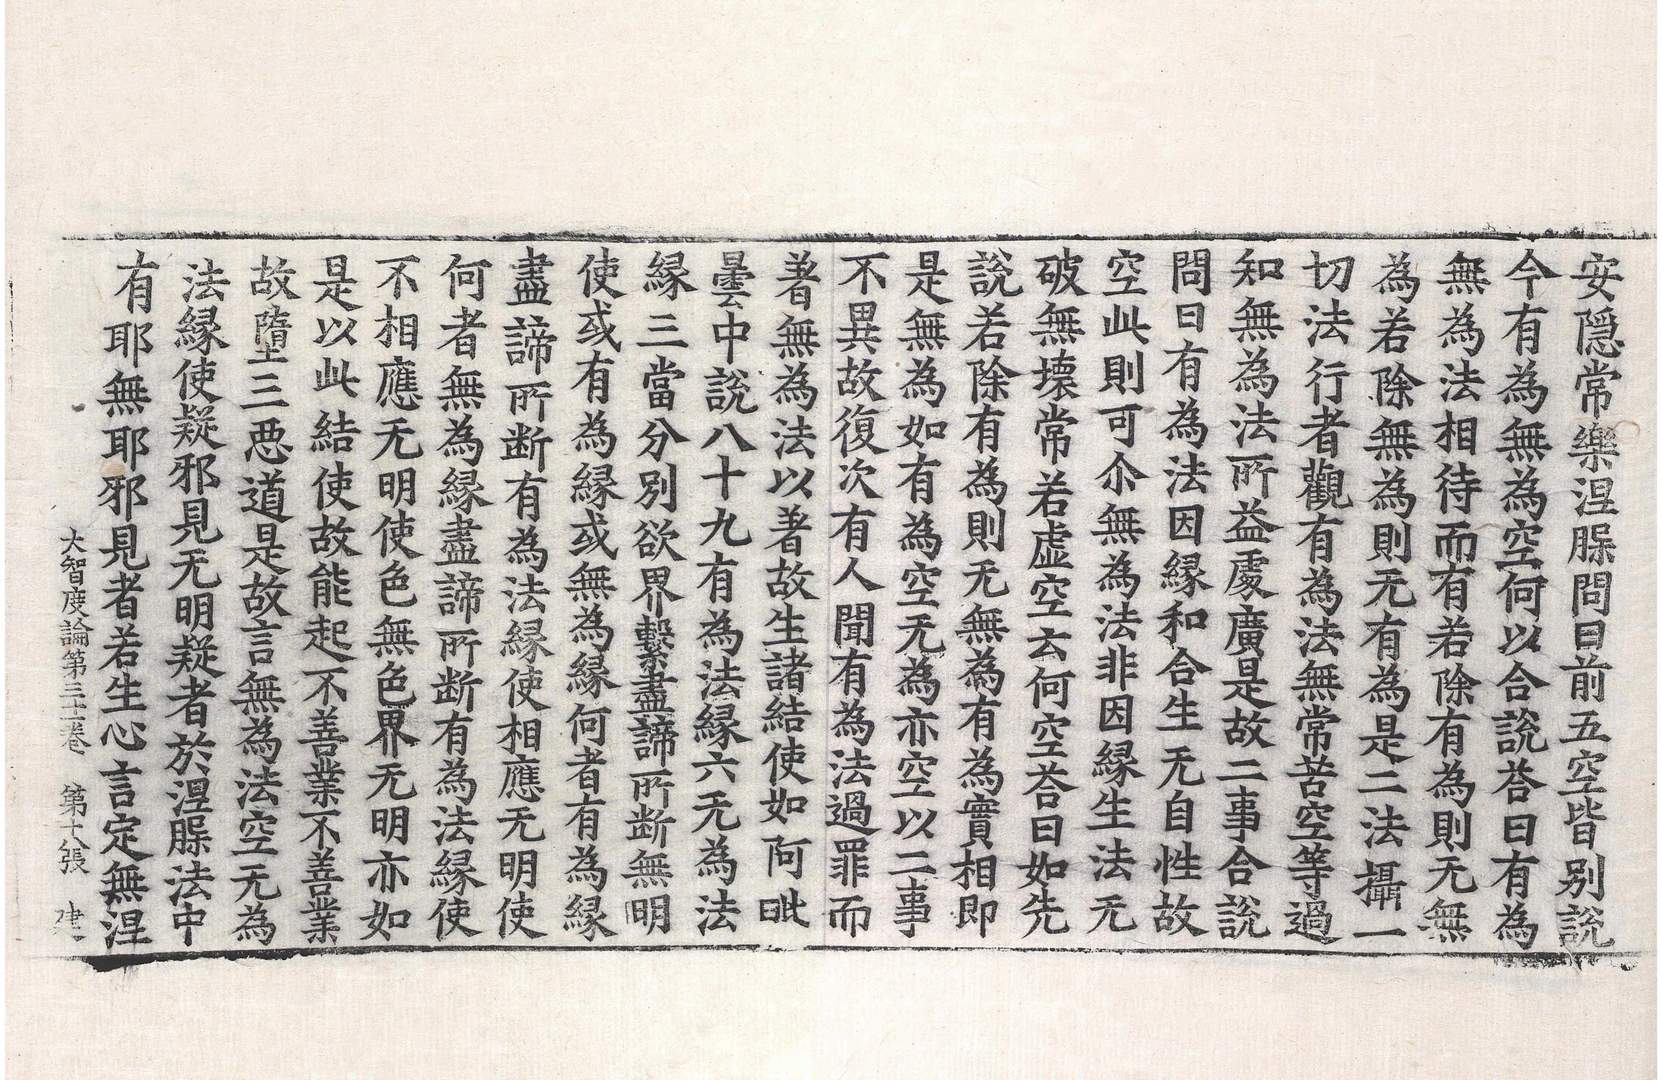 安隱常樂涅脲問曰前五空皆別說
今有為無為空何以合說荅曰有為
無為法相待而有若除有為則无無
為若除無為則无有為是二法攝一
切法行者觀有為法無常苦空等過
知無為法所益處廣是故二事合說
問曰有為法因緣和合生无自性故
空此則可尒無為法非因緣生法无
破無壞常若虛空云何空荅曰如先
說若除有為則无無為有為實相即
是無為如有為空无為亦空以二事
不異故復次有人聞有為法過罪而
著無為法以著故生諸結使如阿毗
曇中說八十九有為法緣六无為法
緣三當分別欲界繫盡諦所断無明
使或有為緣或無為緣何者有為緣
盡諦所断有為法緣使相應无明使
何者無為緣盡諦所断有為法緣使
不相應无明使色無色界无明亦如
是以此結使故能起不善業不善業
故墮三惡道是故言無為法空无為
法緣使疑邪見无明疑者於涅脲法中
有耶無耶邪見者若生心言定無涅
大智度論第三十一卷　第十八張　建